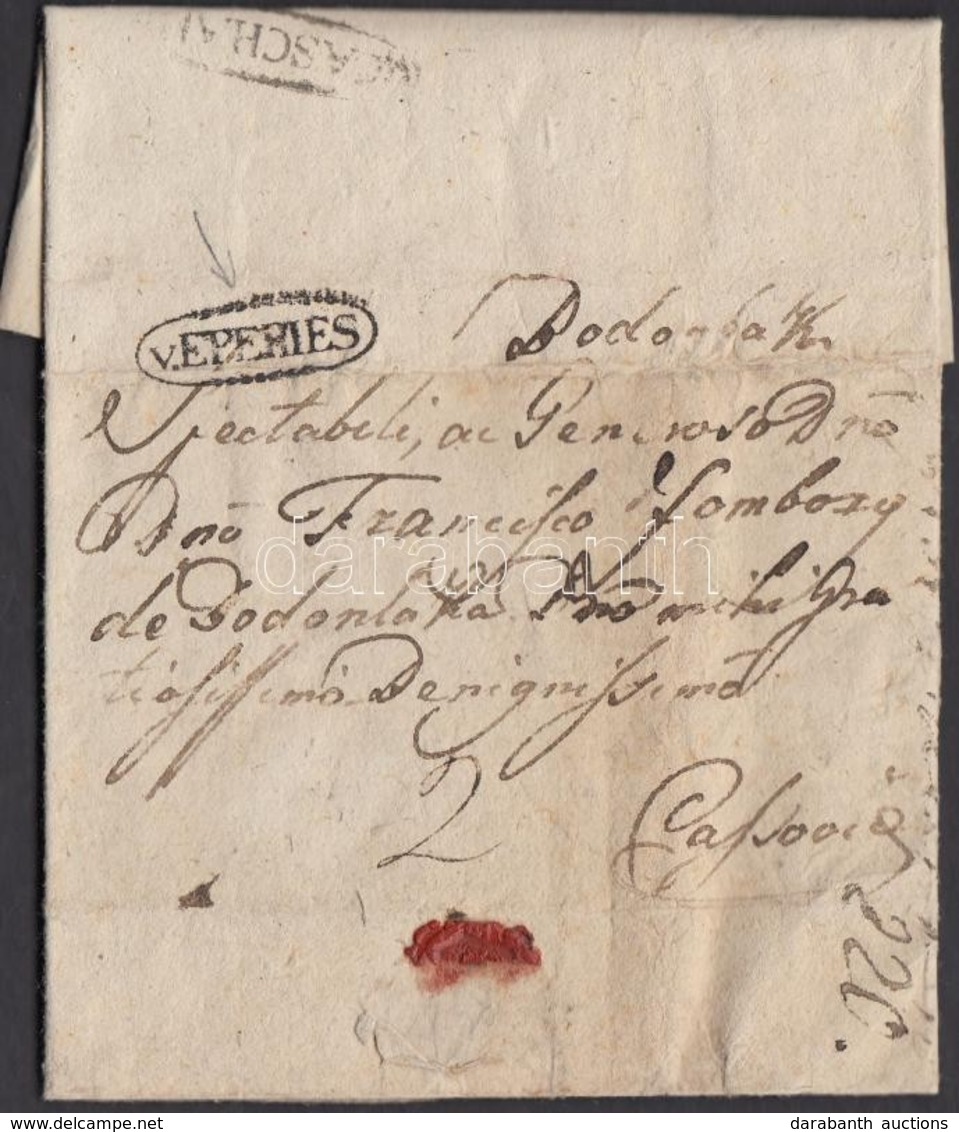 v. CASCHAU
v. EPERIES
Bodonlak
Spectabili, ac Generoso Dnō
Dnō Francisco Zsomborÿ
de Bodonlaka Dnō mihi Gra
tiosissimō Benignissimō
2
Cassoviæ
darabanth
darabanth auctions